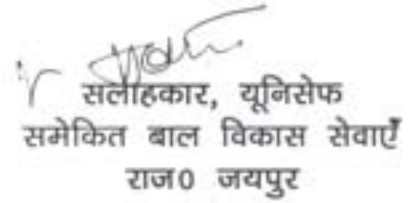 सलाहकार, यूनिसेफ
समेकित बाल विकास सेवाएँ
राज0 जयपुर